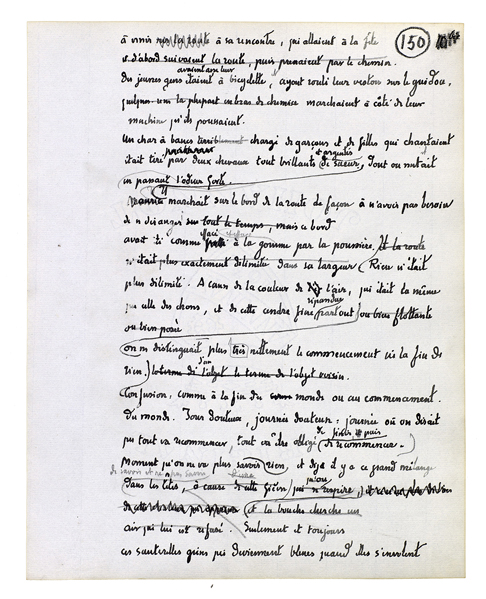 150
à venir sur la route à sa rencontre, qui allaient à la file
et d'abord suivaient la route, puis prenaient par le chemin.
avaient avec leur
Des jeunes gens étaient à bicyclette, ayant roulé leur veston sur le guidon,
quelques-uns la plupart en bras de chemise marchaient à côté de leur
machine qu'ils poussaient.
Un char à bancs chargé de garçons et de filles qui chantaient
et argentés
était tiré par deux chevaux tout brillants de sueur, dont on sentait
en passant l'odeur forte.
Il
marchait sur le bord de la route de façon à n'avoir pas besoin
de se déranger sur tout le temps, mais ce bord
effacé
avait été comme à la gomme par la poussière. Et la route
n'était plus exactement délimitée dans sa largeur Rien n'était
plus délimité. A cause de la couleur de l'air, qui était la même
répandue
que celle des choses, et de cette cendre fine partout ou bien flottante
ou bien posée
on ne distinguait plus très nettement le commencement ni la fin de
rien, le terme de l'objet le terme de l'objet voisin.
Confusion, comme à la fin du monde ou au commencement.
du monde. Jour douteux, journée douteuse: journée où on dirait
que tout va recommencer, tout va être obligé de recommencer.
Moment qu'on ne va plus savoir rien, et déjà il y a ce grand mélange
de savoir et ne plus savoir
qu'on
Dans les têtes, à cause de cette fièvre qui respire,
et la bouche cherche un
air qui lui est refusé. Seulement et toujours
ces sauterelles grises qui deviennent bleues quand elles s'envolent